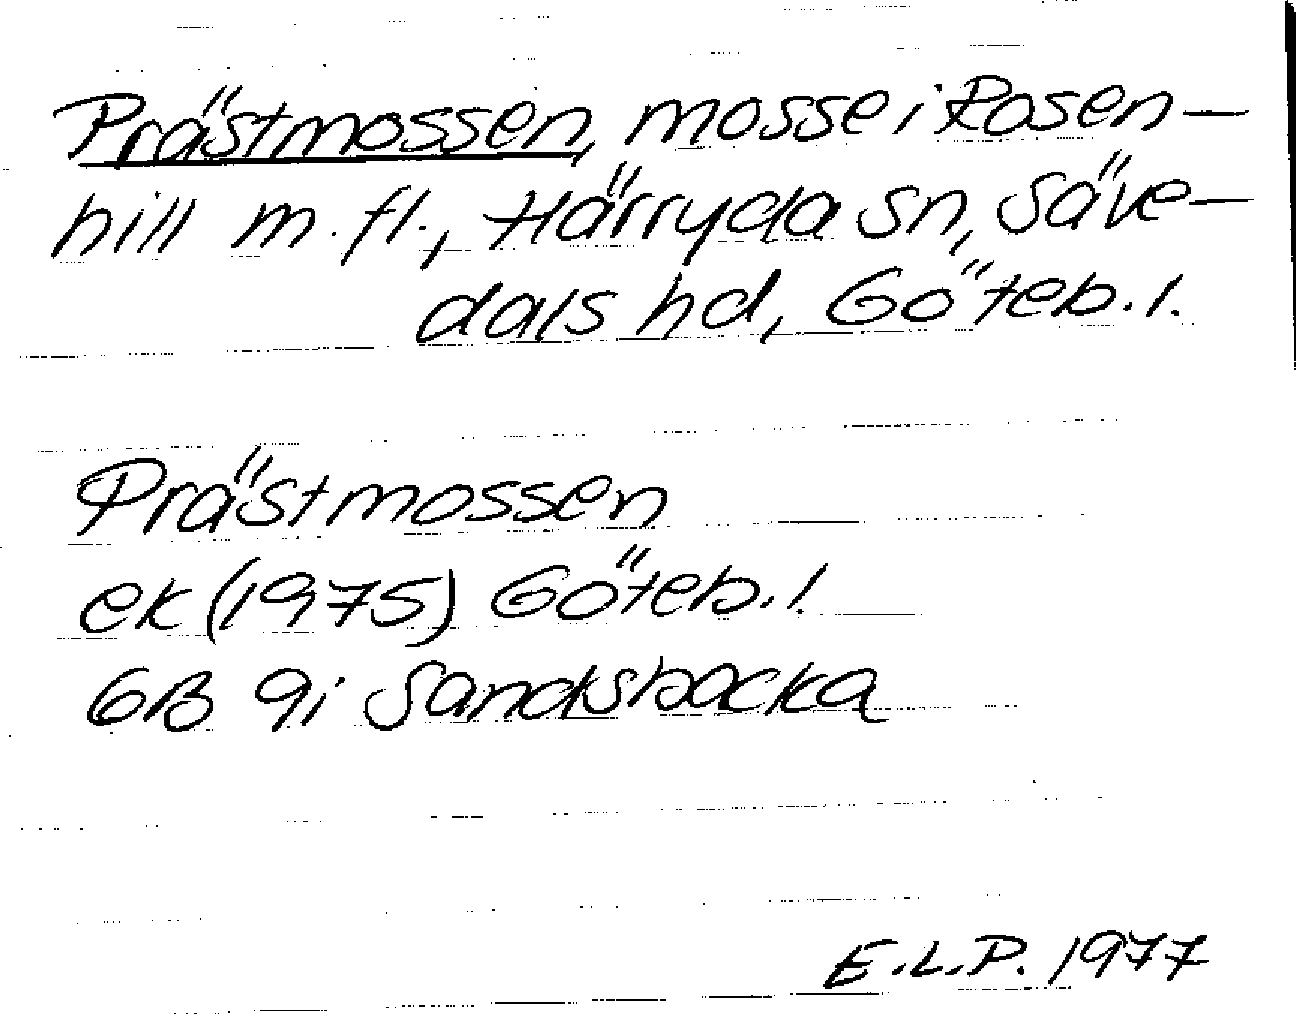 Prästmossen, mosse i Rosen-
hill m.fl., Härryda sn, Säve-
dals hd, Göteb.l.
Prästmossen
ek (1975) Göteb.l.
6B 9i Sandsbacka
E.L.P. 1977